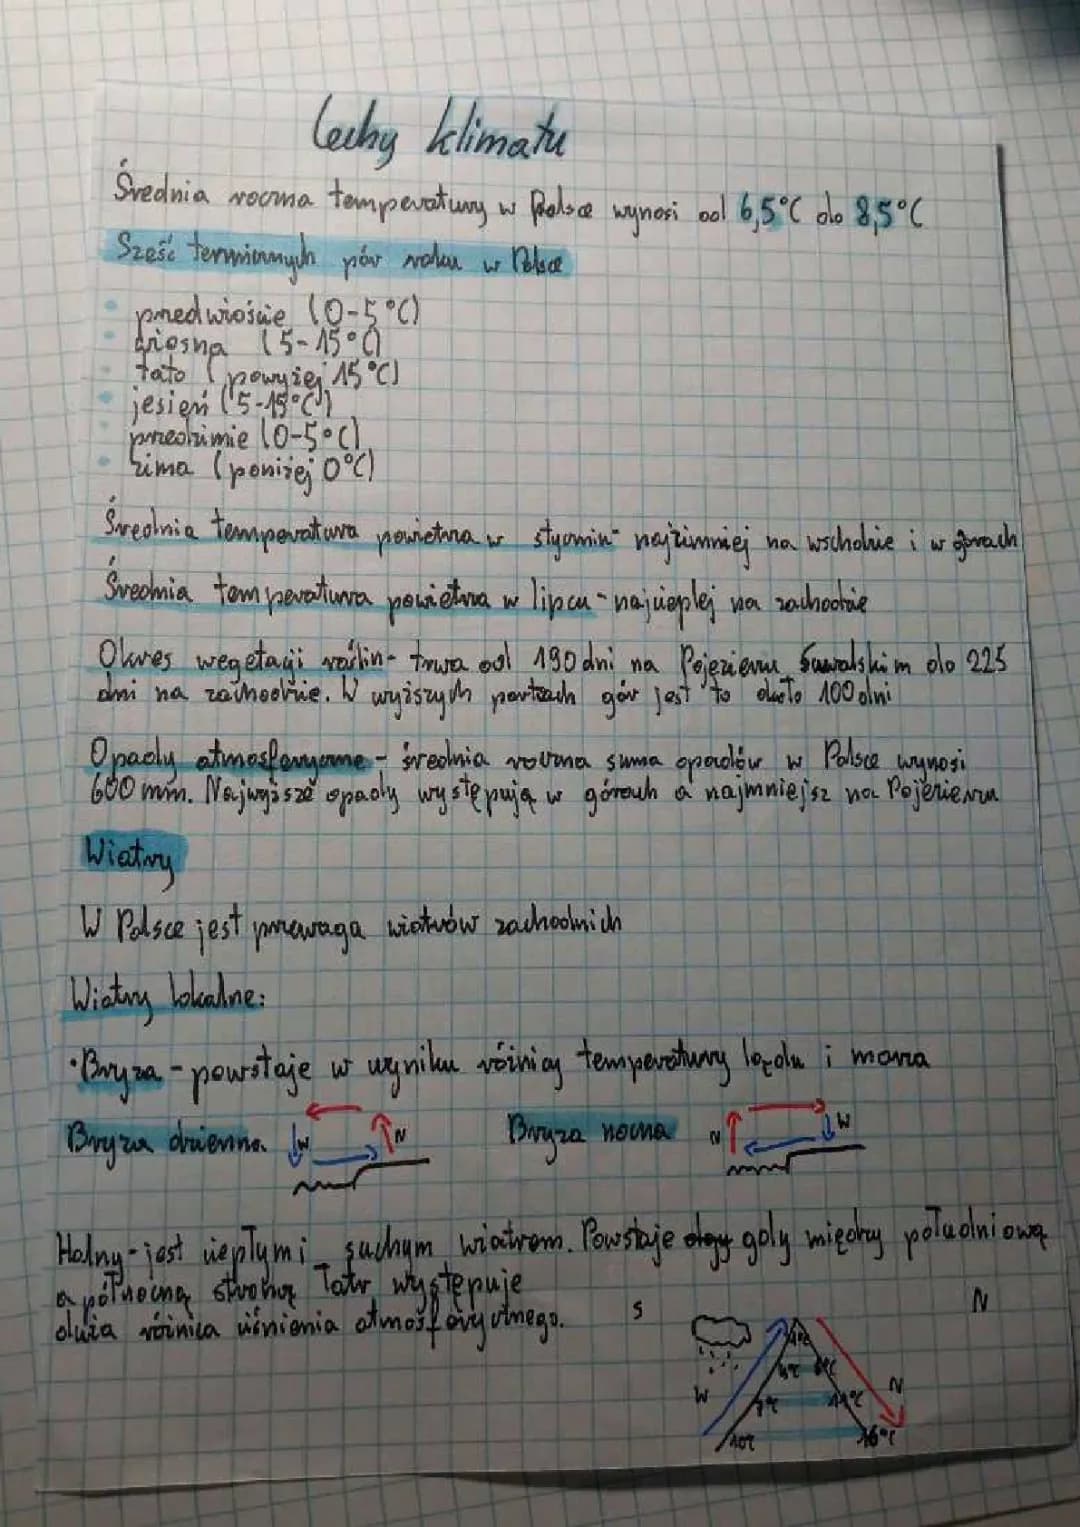 Cechy klimatu
Średnia roczna temperatury w Polsce wynosi od 6,5°C do 8,5°C
Sześć termicznych pór roku w Polsce
• przedwiośnie (0-5°C)
• wiosna (5-15°C)
• lato (powyżej 15°C)
• jesień (5-15°C)
• przedzimie (0-5°C)
• zima (poniżej 0°C)
Średnia temperatura powietrza w styczniu- najzimniej na wschodzie i w górach
Średnia temperatura powietrza w lipcu- najcieplej na zachodzie
Okres wegetacji roślin- trwa od 190 dni na Pojezierzu Suwalskim do 225
dni na zachodzie. W wyższych partiach gór jest to około 100 dni
Opady atmosferyczne - średnia roczna suma opadów w Polsce wynosi
600 mm. Najwyższe opady występują w górach a najmniejsz na Pojezierzu
Wiatry
W Polsce jest przewaga wiatrów zachodnich
Wiatry lokalne:
•Bryza - powstaje w wyniku różnicy temperatury lądu i morza
Bryza dzienna W N Bryza nocna N W
Halny- jest ciepłym i suchym wiatrem. Powstaje gdy między południową
a północną stroną Tatr występuje
duża różnica ciśnienia atmosferycznego.
S N
W N
4°C 11°C
7°C
10°C 16°C